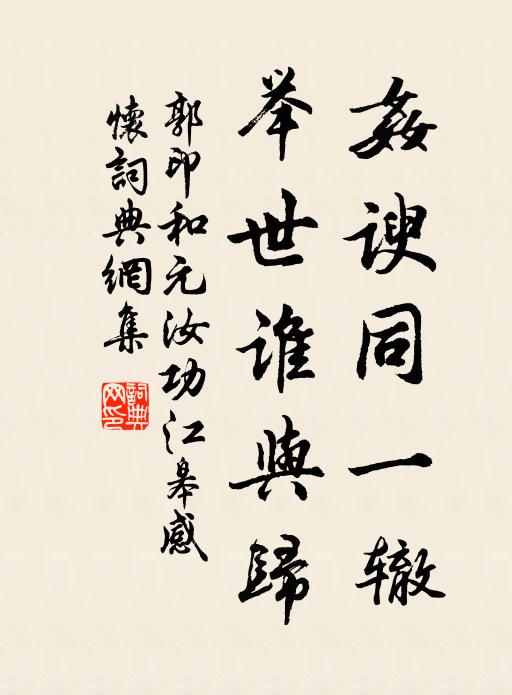 姦谀同一辙
举世谁與歸
郭印和元汝功江皋感
懷詞典網集
詞典
网印